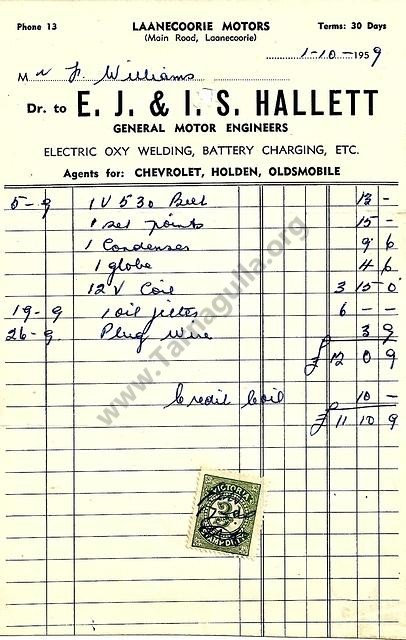 Phone 13 LAANECOORIE MOTORS Terms: 30 Days
(Main Road, Laanecoorie)
1-10-1959
Mr J. Williams
Dr. to E. J. & I. S. HALLETT
GENERAL MOTOR ENGINEERS
ELECTRIC OXY WELDING, BATTERY CHARGING, ETC.
Agents for: CHEVROLET, HOLDEN, OLDSMOBILE
5-9 1 V530 Belt 13 -
1 set points 15 -
1 Condenser 9 6
1 globe 4 6
12 V Coil 3 15 0
19-9 1 oil filter 6 - -
26-9 Plug Wire 3 9
£ 12 0 9
Credit Coil 10 -
£ 11 10 9
www.Tarnagulla.org
VICTORIA
STAMP DUTY